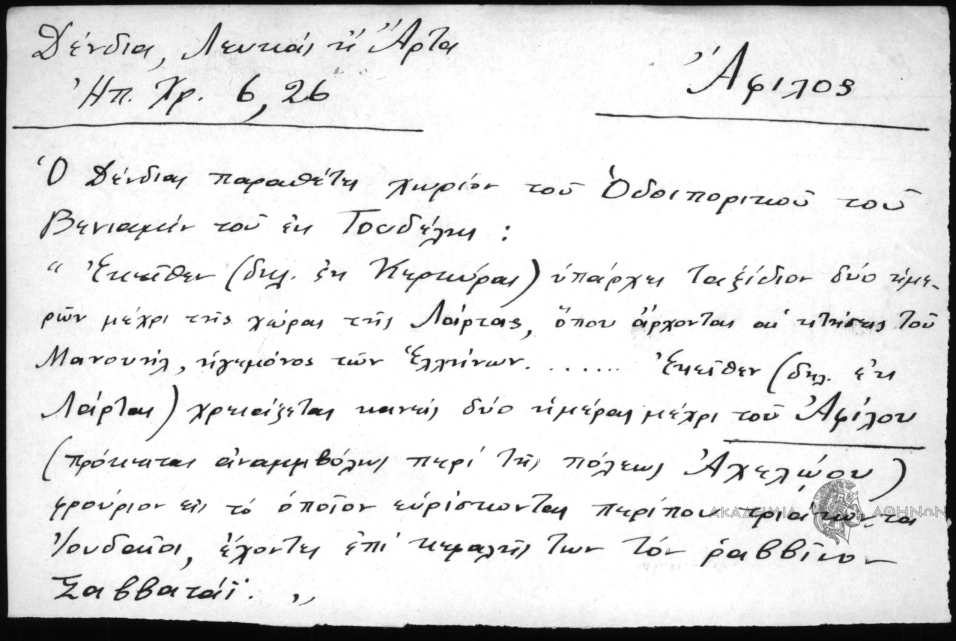 Δένδια, Λευκάς κ Ἄρτα
Ἠπ. Χρ. 6,26
Ἄφιλος
Ὁ Δένδιας παραθέτει χωρίον τοῦ Ὁδοιπορικοῦ τοῦ
Βενιαμὶν τοῦ ἐκ Τουδέλης :
" Ἐκεῖθεν (δηλ. ἐκ Κερκύρας) ὑπάρχει ταξίδιον δύο ἡμε-
ρῶν μέχρι τῆς χώρας τῆς Λάρτας, ὅπου ἄρχονται αἱ κτήσεις τοῦ
Μανουήλ, ἡγεμόνος τῶν Ἑλλήνων. ...... Ἐκεῖθεν (δηλ. ἐκ
Λάρτας) χρειάζεται κανεὶς δύο ἡμέρας μέχρι τοῦ Ἀφίλου
(πρόκειται ἀναμφιβόλως περὶ τῆς πόλεως Ἀχελώου)
φρούριον εἰς τὸ ὁποῖον εὑρίσκονται περίπου τριάκοντα
Ἰουδαῖοι, ἔχοντες ἐπὶ κεφαλῆς των τὸν ῥαββῖνον
Σαββατάϊ. "
ΑΚΑΔΗΜΙΑ ΑΘΗΝΩΝ